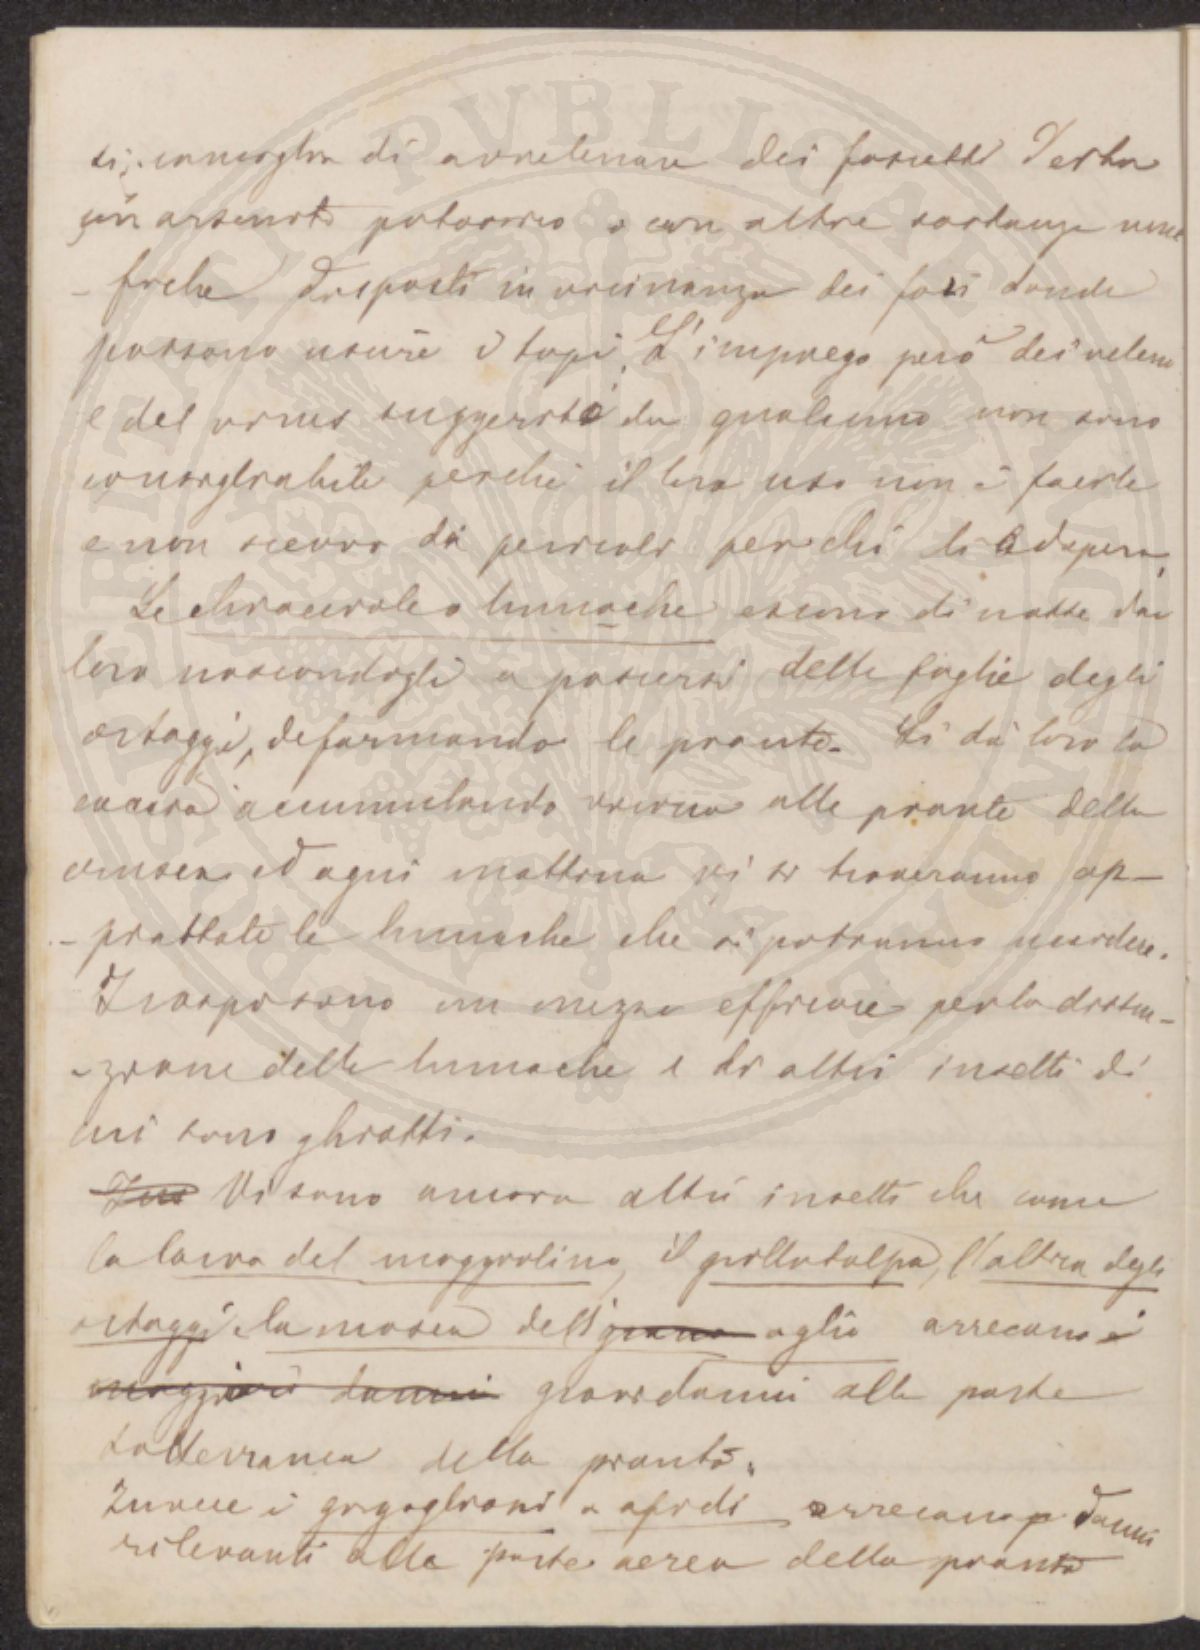 si consiglia di avvelenare dei fascetti d'erba
con arsenito potassico o con altre sostanze vene
-fiche disposti in vicinanza dei fori donde
possono uscire i topi. L'impiego però dei veleni
e del virus suggeriti da qualcuno non sono
consigliabili perchè il loro uso non è facile
e non scevro da pericoli per chi li adopera.
Le chiocciole o lumache escono di notte dai
loro nascondigli a pascersi delle foglie degli
ortaggi, deformando le piante. Si dà loro la
caccia accumulando vicino alle piante della
crusca ed ogni mattina vi si troveranno ap-
-piattate le lumache che si potranno uccidere.
I rospi sono un mezzo efficace per la distru-
-zione delle lumache e di altri insetti di
cui sono ghiotti.
Vi sono ancora altri insetti che come
la larva del maggiolino, il grillotalpa, l'altica degli
ortaggi la mosca dell' grano aglio arrecano i
maggiori danni gravi danni alla parte
sotterranea della pianta.
Invece i gorgoglioni o afidi arrecano danni
rilevanti alla parte aerea della pianta